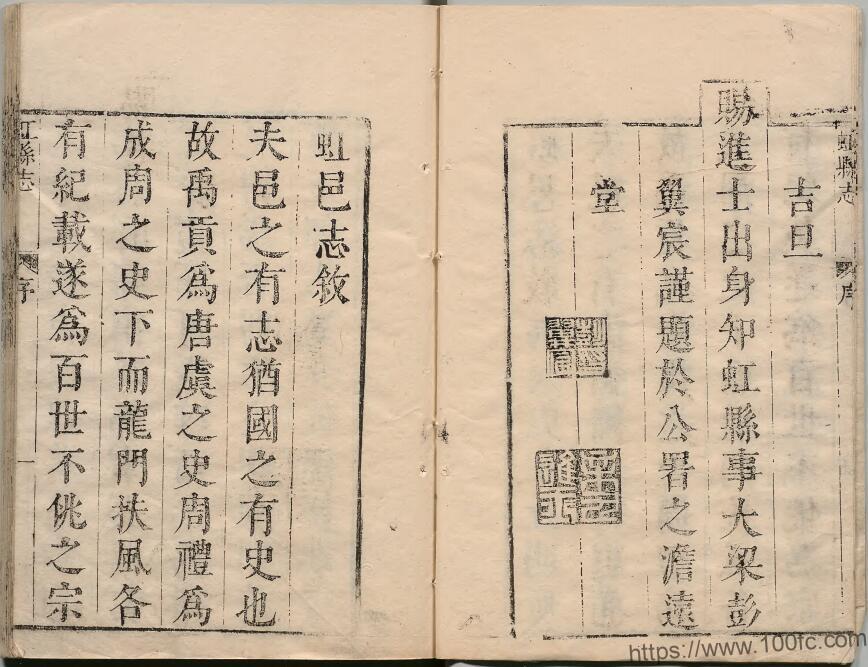 虹縣志
序
吉旦
賜進士出身知虹縣事大梁彭
翼宸謹題於公署之澹遠
堂
虹邑志敘
夫邑之有志猶國之有史也
故禹貢爲唐虞之史周禮爲
成周之史下而龍門扶風各
有紀載遂爲百世不祧之宗
虹縣志
序
一
https://www.100fc.com